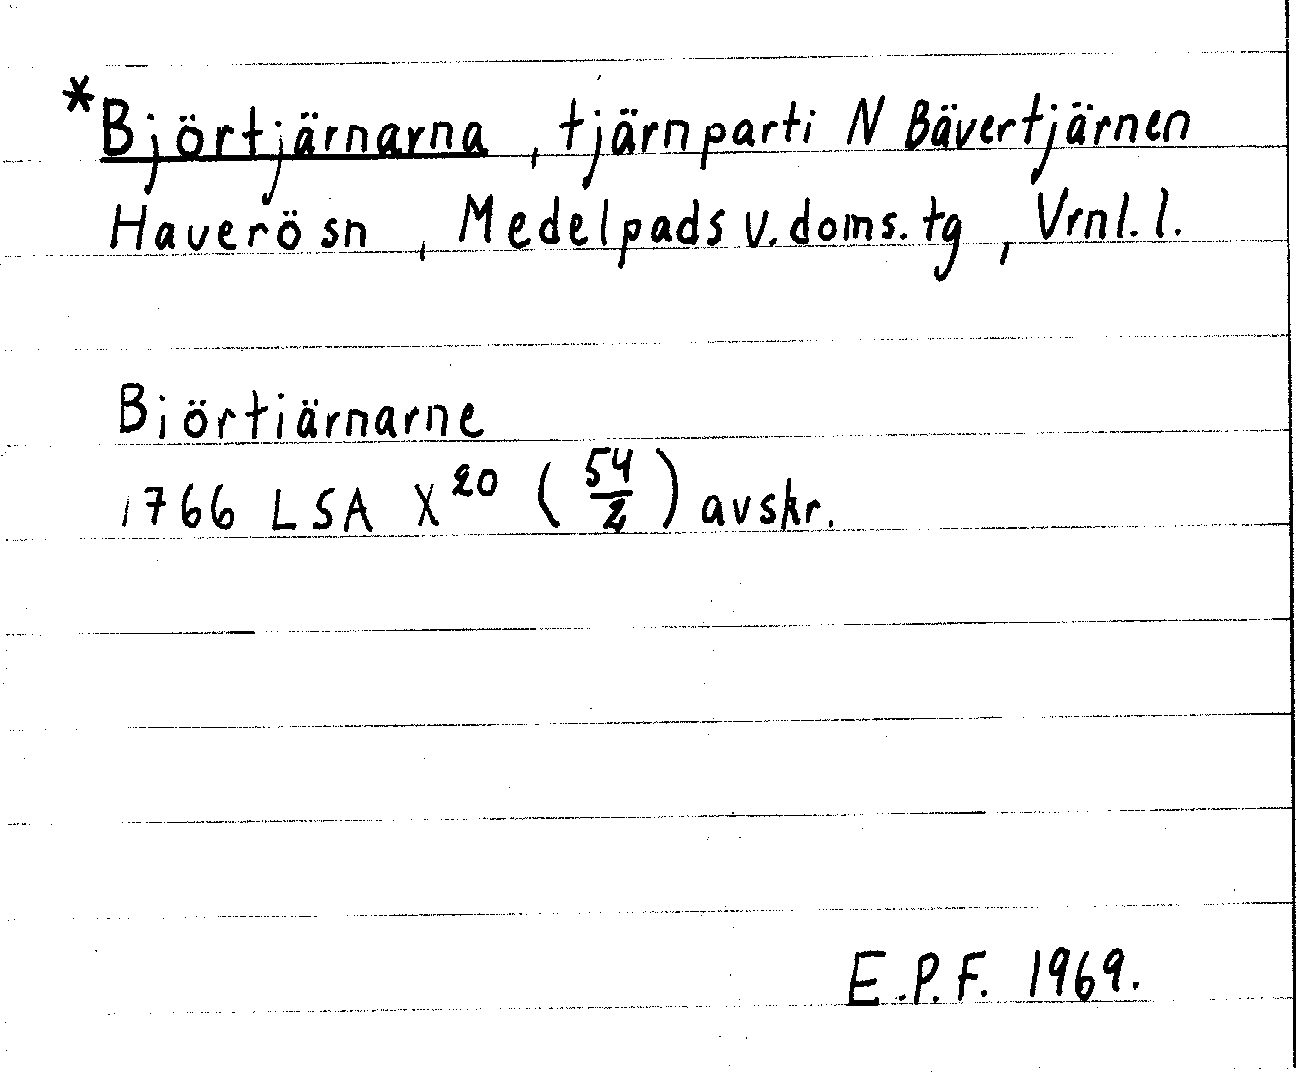 *Björtjärnarna, tjärnparti N Bävertjärnen
Haverö sn, Medelpads v. doms. tg, Vrnl. l.
Biörtiärnarne
1766 LSA X²⁰ (54/2) avskr.
E.P.F. 1969.